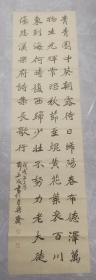 青青園中葵朝露待日晞陽春布德澤萬
物生光輝常恐秋節至焜黃花葉衰百川
東到海何時復西歸少壯不努力老大徒
傷悲漢樂府詩集長歌行